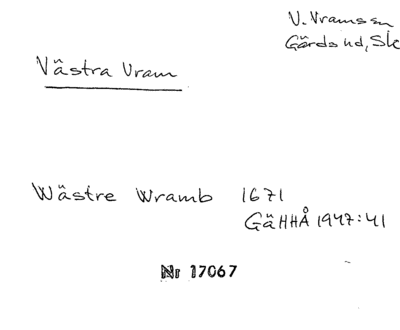 V. Vrams sn
Gärds hd, Sk
Västra Vram
Wästre Wramb 1671
GäHHÅ 1947:41
Nr 17067